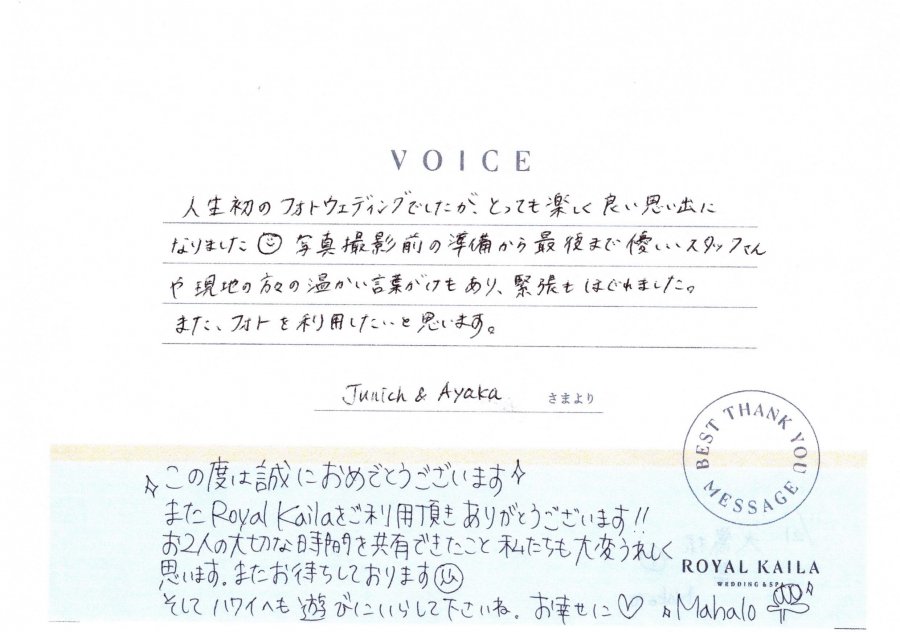 VOICE
人生初のフォトウェディングでしたが、とっても楽しく良い思い出に
なりました 写真撮影前の準備から最後まで優しいスタッフさん
や現地の方々の温かい言葉がけもあり、緊張もほぐれました。
また、フォトを利用したいと思います。
Junich & Ayaka さまより
BEST THANK YOU MESSAGE
この度は誠におめでとうございます
またRoyal Kailaをご利用頂きありがとうございます!!
お2人の大切な時間を共有できたこと私たちも大変うれしく
思います。またお待ちしております
そしてハワイへも遊びにいらして下さいね。お幸せに♡ Mahalo
ROYAL KAILA
WEDDING & SPA